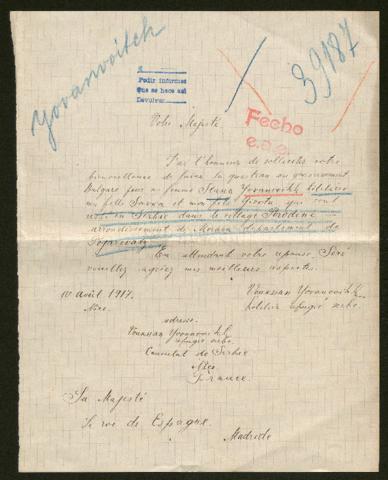 Yovanovitch
39187
Pedir informes
Que se hace así
Devolver
Fecho
e.a.e.
Votre Majesté.
J'ai l'honneur de solliciter votre
bienveillance de faire la question au gouvernement
Bulgare pour ma femme Stana Yovanovitch
ma fille et mon fils qui sont
en Serbie dans le village
arrondissement de département de
En attendant votre réponse,
veuillez agréez mes meilleurs respects.
10 Août 1917.
Nice.
Voukssan Yovanovitch
refugié serbe.
adresse.
Voukssan Yovanovitch
refugié serbe.
Consulat de Serbie
Nice
France.
Sa Majesté
le roi de Espagne.
Madride